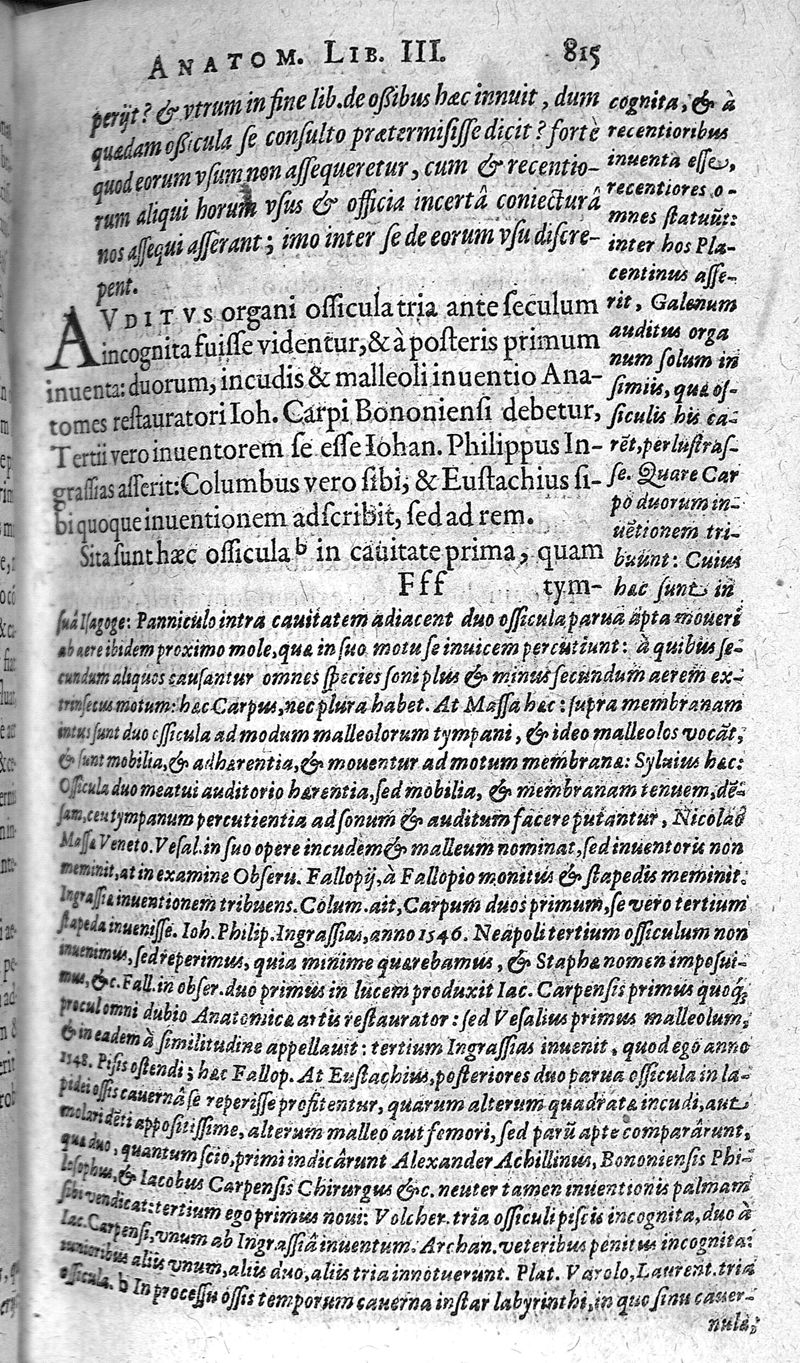 ANATOM. LIB. III. 815
perijt? & vtrum in fine lib. de oſsibus hæc innuit, dum
quædam oſsicula ſe conſulto prætermiſiſſe dicit? fortè
quod eorum vſum non aſſequeretur, cum & recentio-
rum aliqui horum vſus & officia incertâ coniecturâ
nos aſſequi aſſerant; imo inter ſe de eorum vſu diſcre-
pent.
AVDITVS organi oſſicula tria ante ſeculum
incognita fuiſſe videntur, & à poſteris primum
inuenta: duorum, incudis & malleoli inuentio Ana-
tomes reſtauratori Ioh. Carpi Bononienſi debetur,
Tertii vero inuentorem ſe eſſe Iohan. Philippus In-
graſſias aſſerit: Columbus vero ſibi, & Euſtachius ſi-
bi quoque inuentionem adſcribit, ſed ad rem.
Sita ſunt hæc oſſicula b in cauitate prima, quam
Fff tym-
cognita, & à
recentioribus
inuenta eſſe,
recentiores o-
mnes ſtatuũt:
inter hos Pla-
centinus aſſe-
rit, Galenum
auditus orga
num ſolum in
ſimiis, quæ oſ-
ſiculis his ca-
rẽt, perluſtraſ-
ſe. Quare Car
po duorum in-
uẽtionem tri-
buũnt: Cuius
hæc ſunt in
ſuâ Iſagoge: Panniculo intra cauitatem adiacent duo oſsicula parua apta moueri
ab aere ibidem proximo mole, quæ in ſuo motu ſe inuicem percutiunt: à quibus ſe-
cundum aliquos cauſantur omnes ſpecies ſoni plus & minus ſecundum aerem ex-
trinſecus motum: hæc Carpus, nec plura habet. At Maſſa hæc: ſupra membranam
intus ſunt duo oſsicula ad modum malleolorum tympani, & ideo malleolos vocãt,
& ſunt mobilia, & adhærentia, & mouentur ad motum membranæ: Sylvius hæc:
Oſsicula duo meatui auditorio hærentia, ſed mobilia, & membranam tenuem, dẽ-
ſam, ceu tympanum percutientia ad ſonum & auditum facere putantur, Nicolao
Maſſa Veneto. Veſal. in ſuo opere incudem & malleum nominat, ſed inuentoris non
meminit, at in examine Obſeru. Fallopij, à Fallopio monitus & ſtapedis meminit.
Ingraſsiæ inuentionem tribuens. Colum. ait, Carpum duos primum, ſe vero tertium
ſtapeda inueniſſe. Ioh. Philip. Ingraſsias, anno 1546. Neapoli tertium oſsiculum non
inuenimus, ſed reperimus, quia minime quærebamus, & Stapha nomen impoſui-
mus, &c. Fall. in obſer. duo primus in lucem produxit Iac. Carpenſis primus quoq;
procul omni dubio Anatomicæ artis reſtaurator: ſed Veſalius primus malleolum,
& in eadem à ſimilitudine appellauit: tertium Ingraſsias inuenit, quod ego anno
1548. Piſis oſtendi; hæc Fallop. At Euſtachius, poſteriores duo parua oſsicula in la-
pidei oſsis cauernâ ſe reperiſſe profitentur, quarum alterum quadratæ incudi, aut
molari dẽti appoſitiſsime, alterum malleo aut femori, ſed parũ apte comparârunt,
quæ duo, quantum ſcio, primi indicârunt Alexander Achillinus, Bononienſis Phi-
loſophus, & Iacobus Carpenſis Chirurgus &c. neuter tamen inuentionis palmam
ſibi vendicat: tertium ego primus noui: Volcher. tria oſsiculi priſcis incognita, duo à
Iac. Carpenſi, vnum ab Ingraſsiâ inuentum. Archan. veteribus penitus incognita:
iunioribus aliis vnum, aliis duo, aliis tria innotuerunt. Plat. Varolo, Laurent. tria
oſsicula. b In proceſſu oſsis temporum cauerna inſtar labyrinthi, in quo ſinu cauer-
nula,